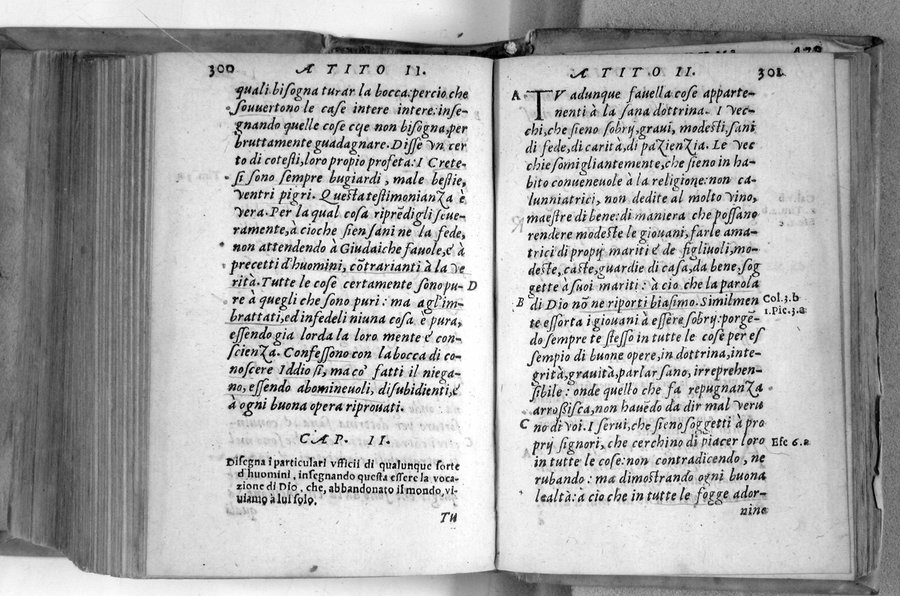 300
A TITO II.
quali bisogna turar la bocca. percio che
souuertono le case intere intere. inse-
gnando quelle cose cqe non bisogna, per
bruttamente guadagnare. Disse vn cer
to di cotesti, loro propio profeta: I Crete-
si sono sempre bugiardi, male bestie,
ventri pigri. Questa testimonianza è
vera. Per la qual cosa riprēdigli seue-
ramente, a cioche sien sani ne la fede,
non attendendo à Giudaiche fauole, e à
precetti d'huomini, cōtrarianti à la ve
rità. Tutte le cose certamente sono pu- D
re à quegli che sono puri: ma agl'im-
brattati, ed infedeli niuna cosa è pura,
essendo gia lorda la loro mente e con-
scienza. Confessono con la bocca di co-
noscere Iddio sì, ma co' fatti il niega-
no, essendo abomineuoli, disubidienti, e
à ogni buona opera riprouati.
CAP. II.
Disegna i particulari vfficii di qualunque sorte
d'huomini, insegnando questa essere la voca-
zione di Dio, che, abbandonato il mondo, vi-
uiamo à lui solo.
Tu
A TITO II.
301
A TV adunque fauella cose apparte-
nenti à la sana dottrina. I vec-
chi, che sieno sobrij, graui, modesti, sani
di fede, di carità, di pazienzia. Le vec
chie somigliantemente, che sieno in ha-
bito conueneuole à la religione: non ca-
lunniatrici, non dedite al molto vino,
maestre di bene: di maniera che possano
rendere modeste le giouani, farle ama-
trici di propij mariti e de figliuoli, mo-
deste, caste, guardie di casa, da bene, sog
gette à suoi mariti: à ciò che la parola
B di Dio nō ne riporti biasimo. Similmen Col.3.b
te essorta i giouani à essere sobrij: porgē- 1.Pic.3.a
do sempre te stesso in tutte le cose per es
sempio di buone opere, in dottrina, inte-
grità, grauità, parlar sano, irreprehen-
sibile: onde quello che fa repugnanza
arrossisca, non hauēdo da dir mal veru
C no di voi. I serui, che sieno soggetti à pro
prij signori, che cerchino di piacer loro Efe 6.a
in tutte le cose: non contradicendo, ne
rubando: ma dimostrando ogni buona
lealtà: à cio che in tutte le fogge ador-
nine